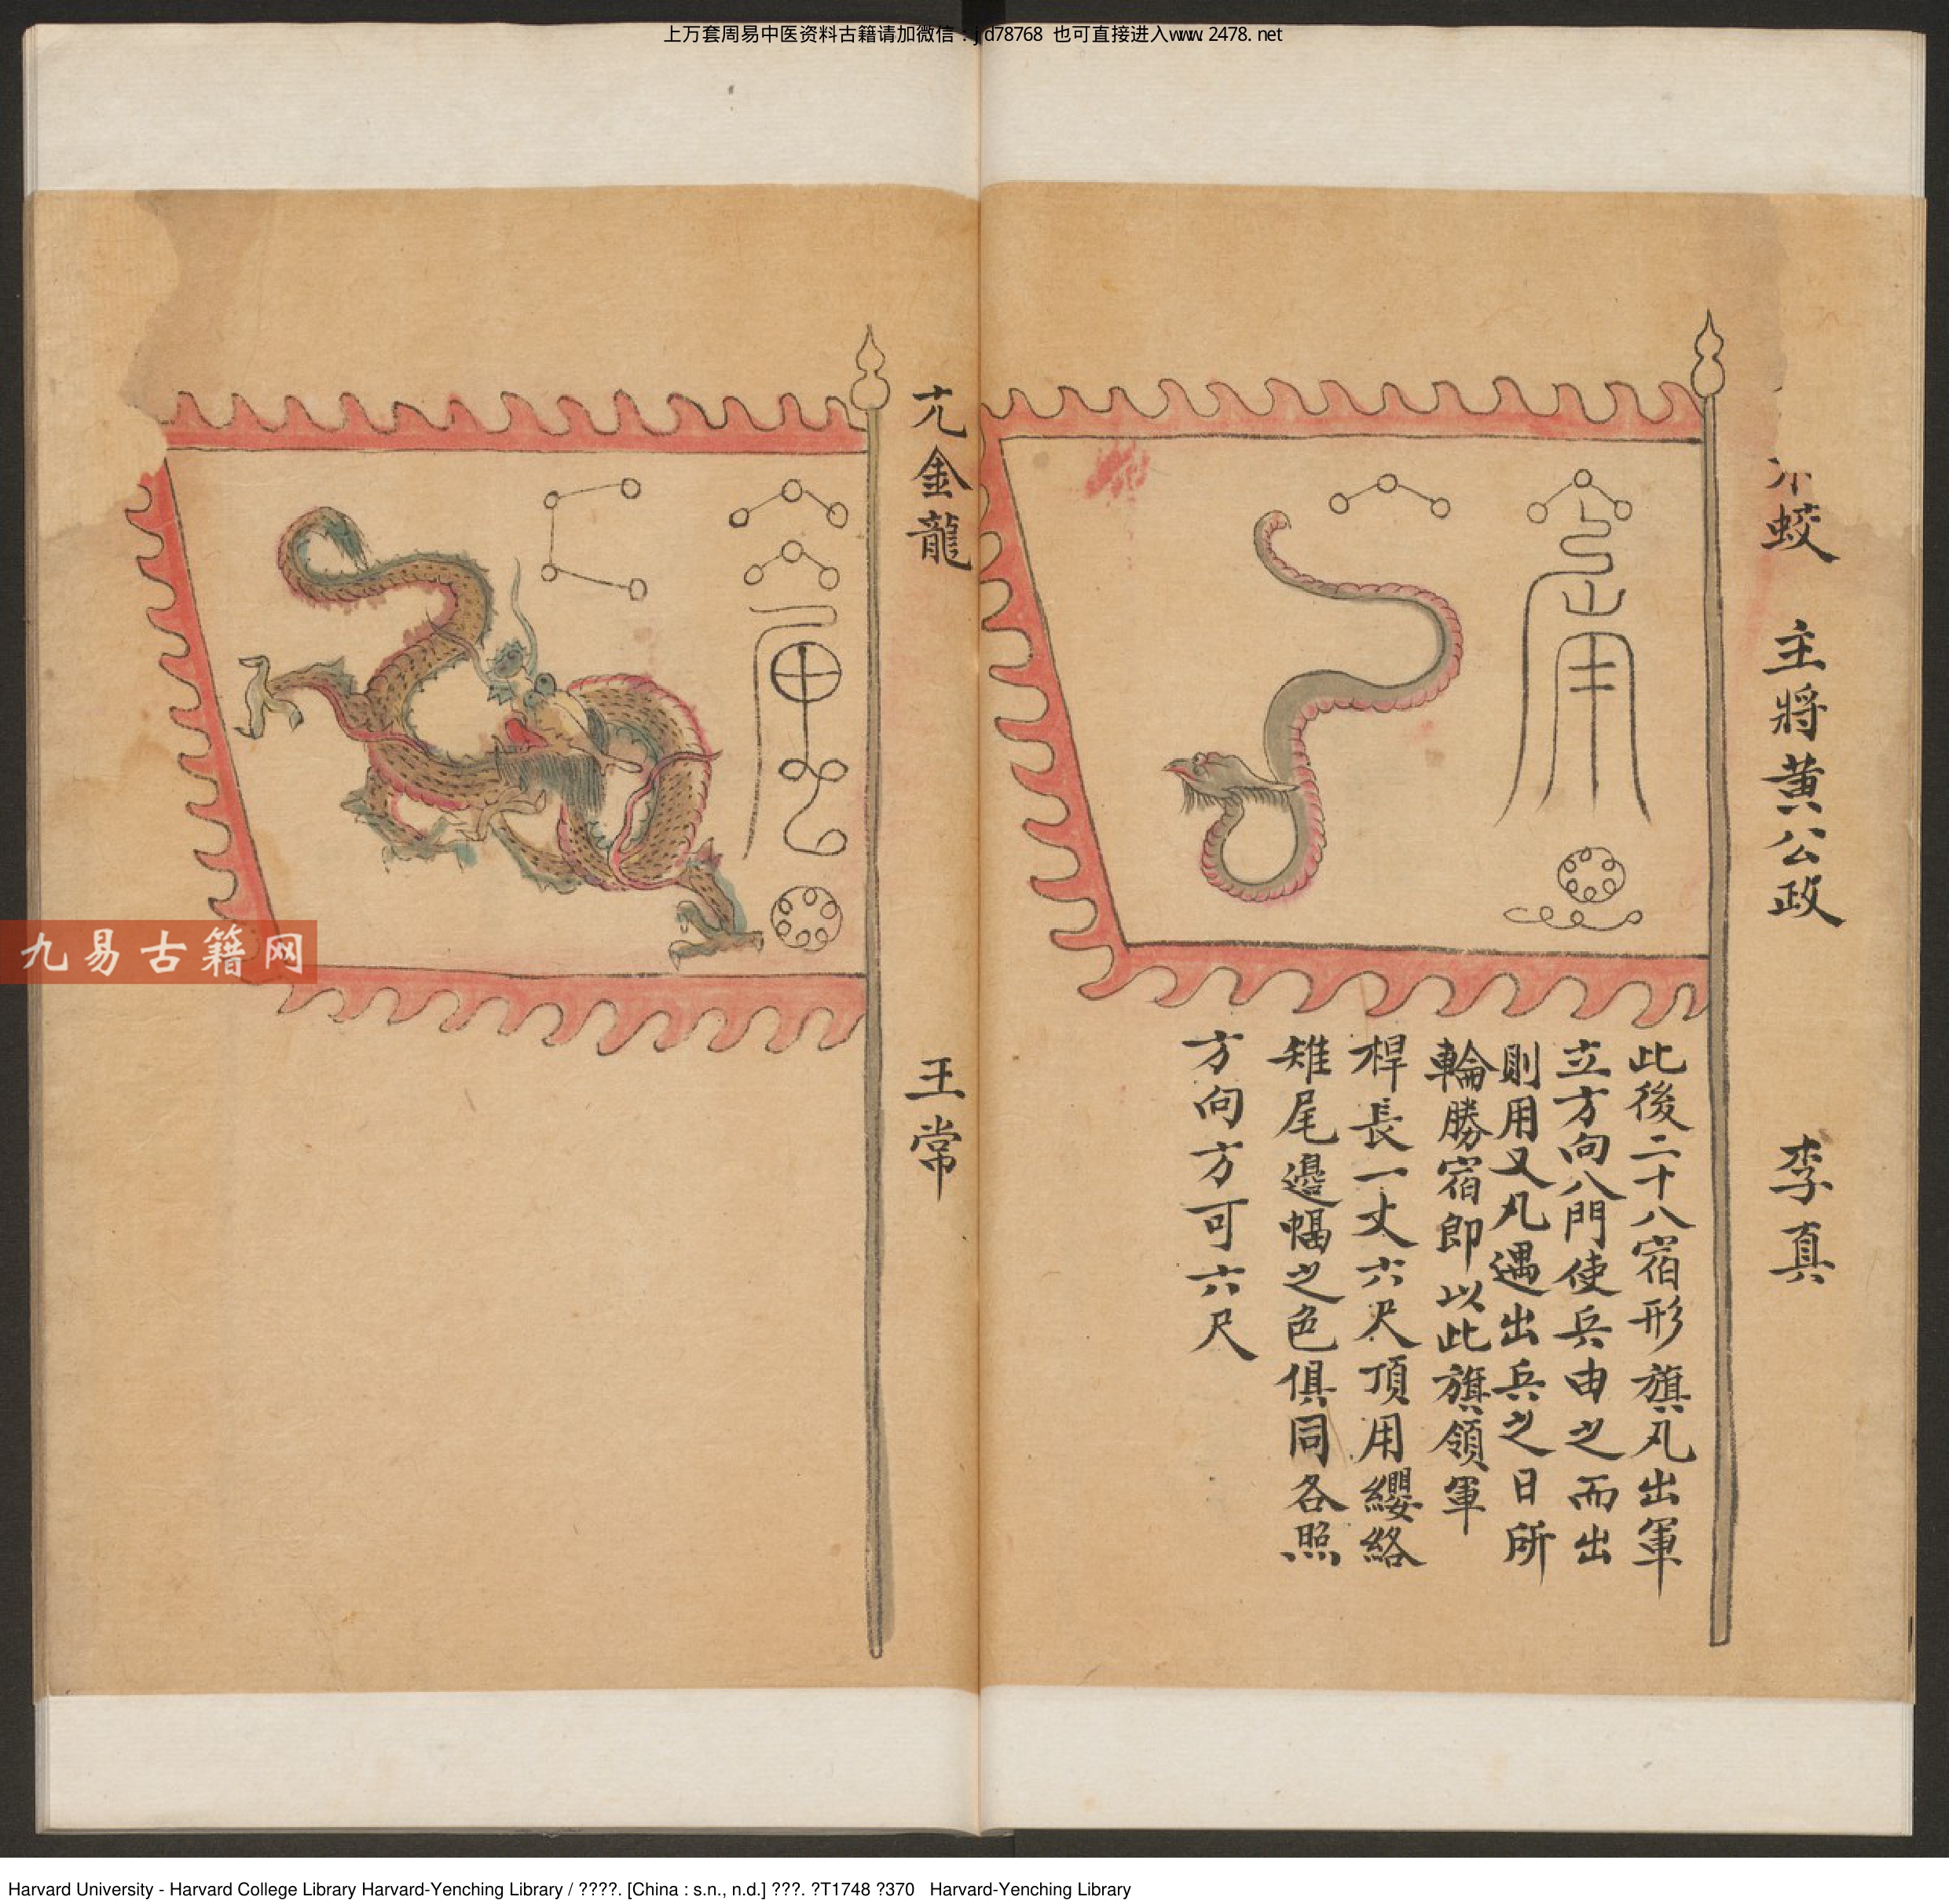 上万套周易中医资料古籍请加微信：jd78768 也可直接进入www.2478.net
蛟 主將黄公政 李真
此後二十八宿形旗凡出軍
立方向八門使兵由之而出
則用又凡遇出兵之日所
輪勝宿即以此旗領軍
桿長一丈六尺頂用纓絡
雉尾邊幅之色俱同各照
方向方可六尺
亢金龍 王常
九易古籍网
Harvard University - Harvard College Library Harvard-Yenching Library / ????. [China : s.n., n.d.] ???. ?T1748 ?370 Harvard-Yenching Library